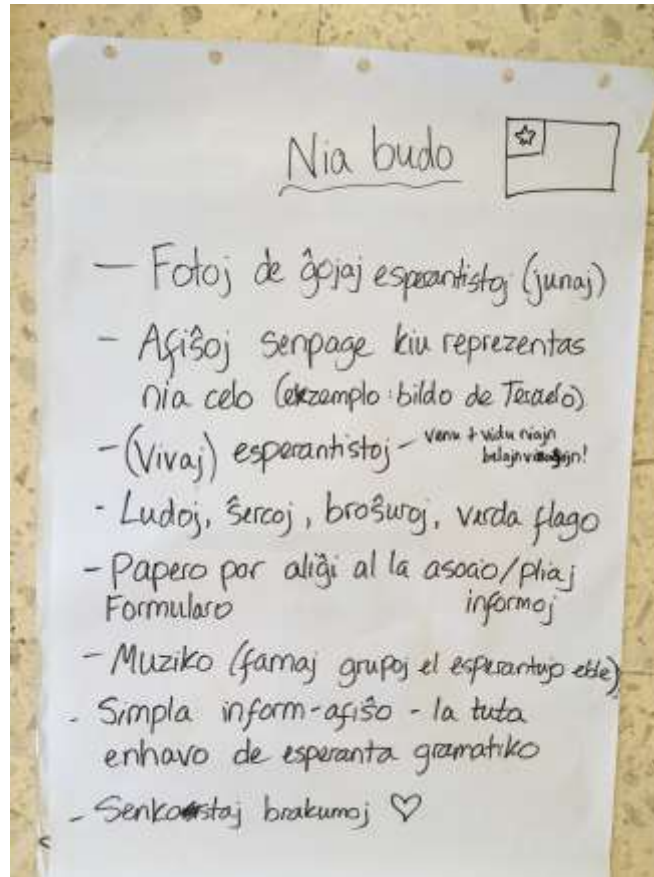 Nia budo
— Fotoj de ĝojaj esperantistoj (junaj)
- Afiŝoj senpage kiu reprezentas
nia celo (ekzemplo: bildo de
- (Vivaj) esperantistoj - venu + vidu niajn
belajn
- Ludoj, ŝercoj, broŝuroj, verda flago
- Papero por aliĝi al la asocio/pliaj
Formularo informoj
- Muziko (famaj grupoj el esperantujo eble)
- Simpla inform-afiŝo - la tuta
enhavo de esperanta gramatiko
- Senkostaj brakumoj ♡